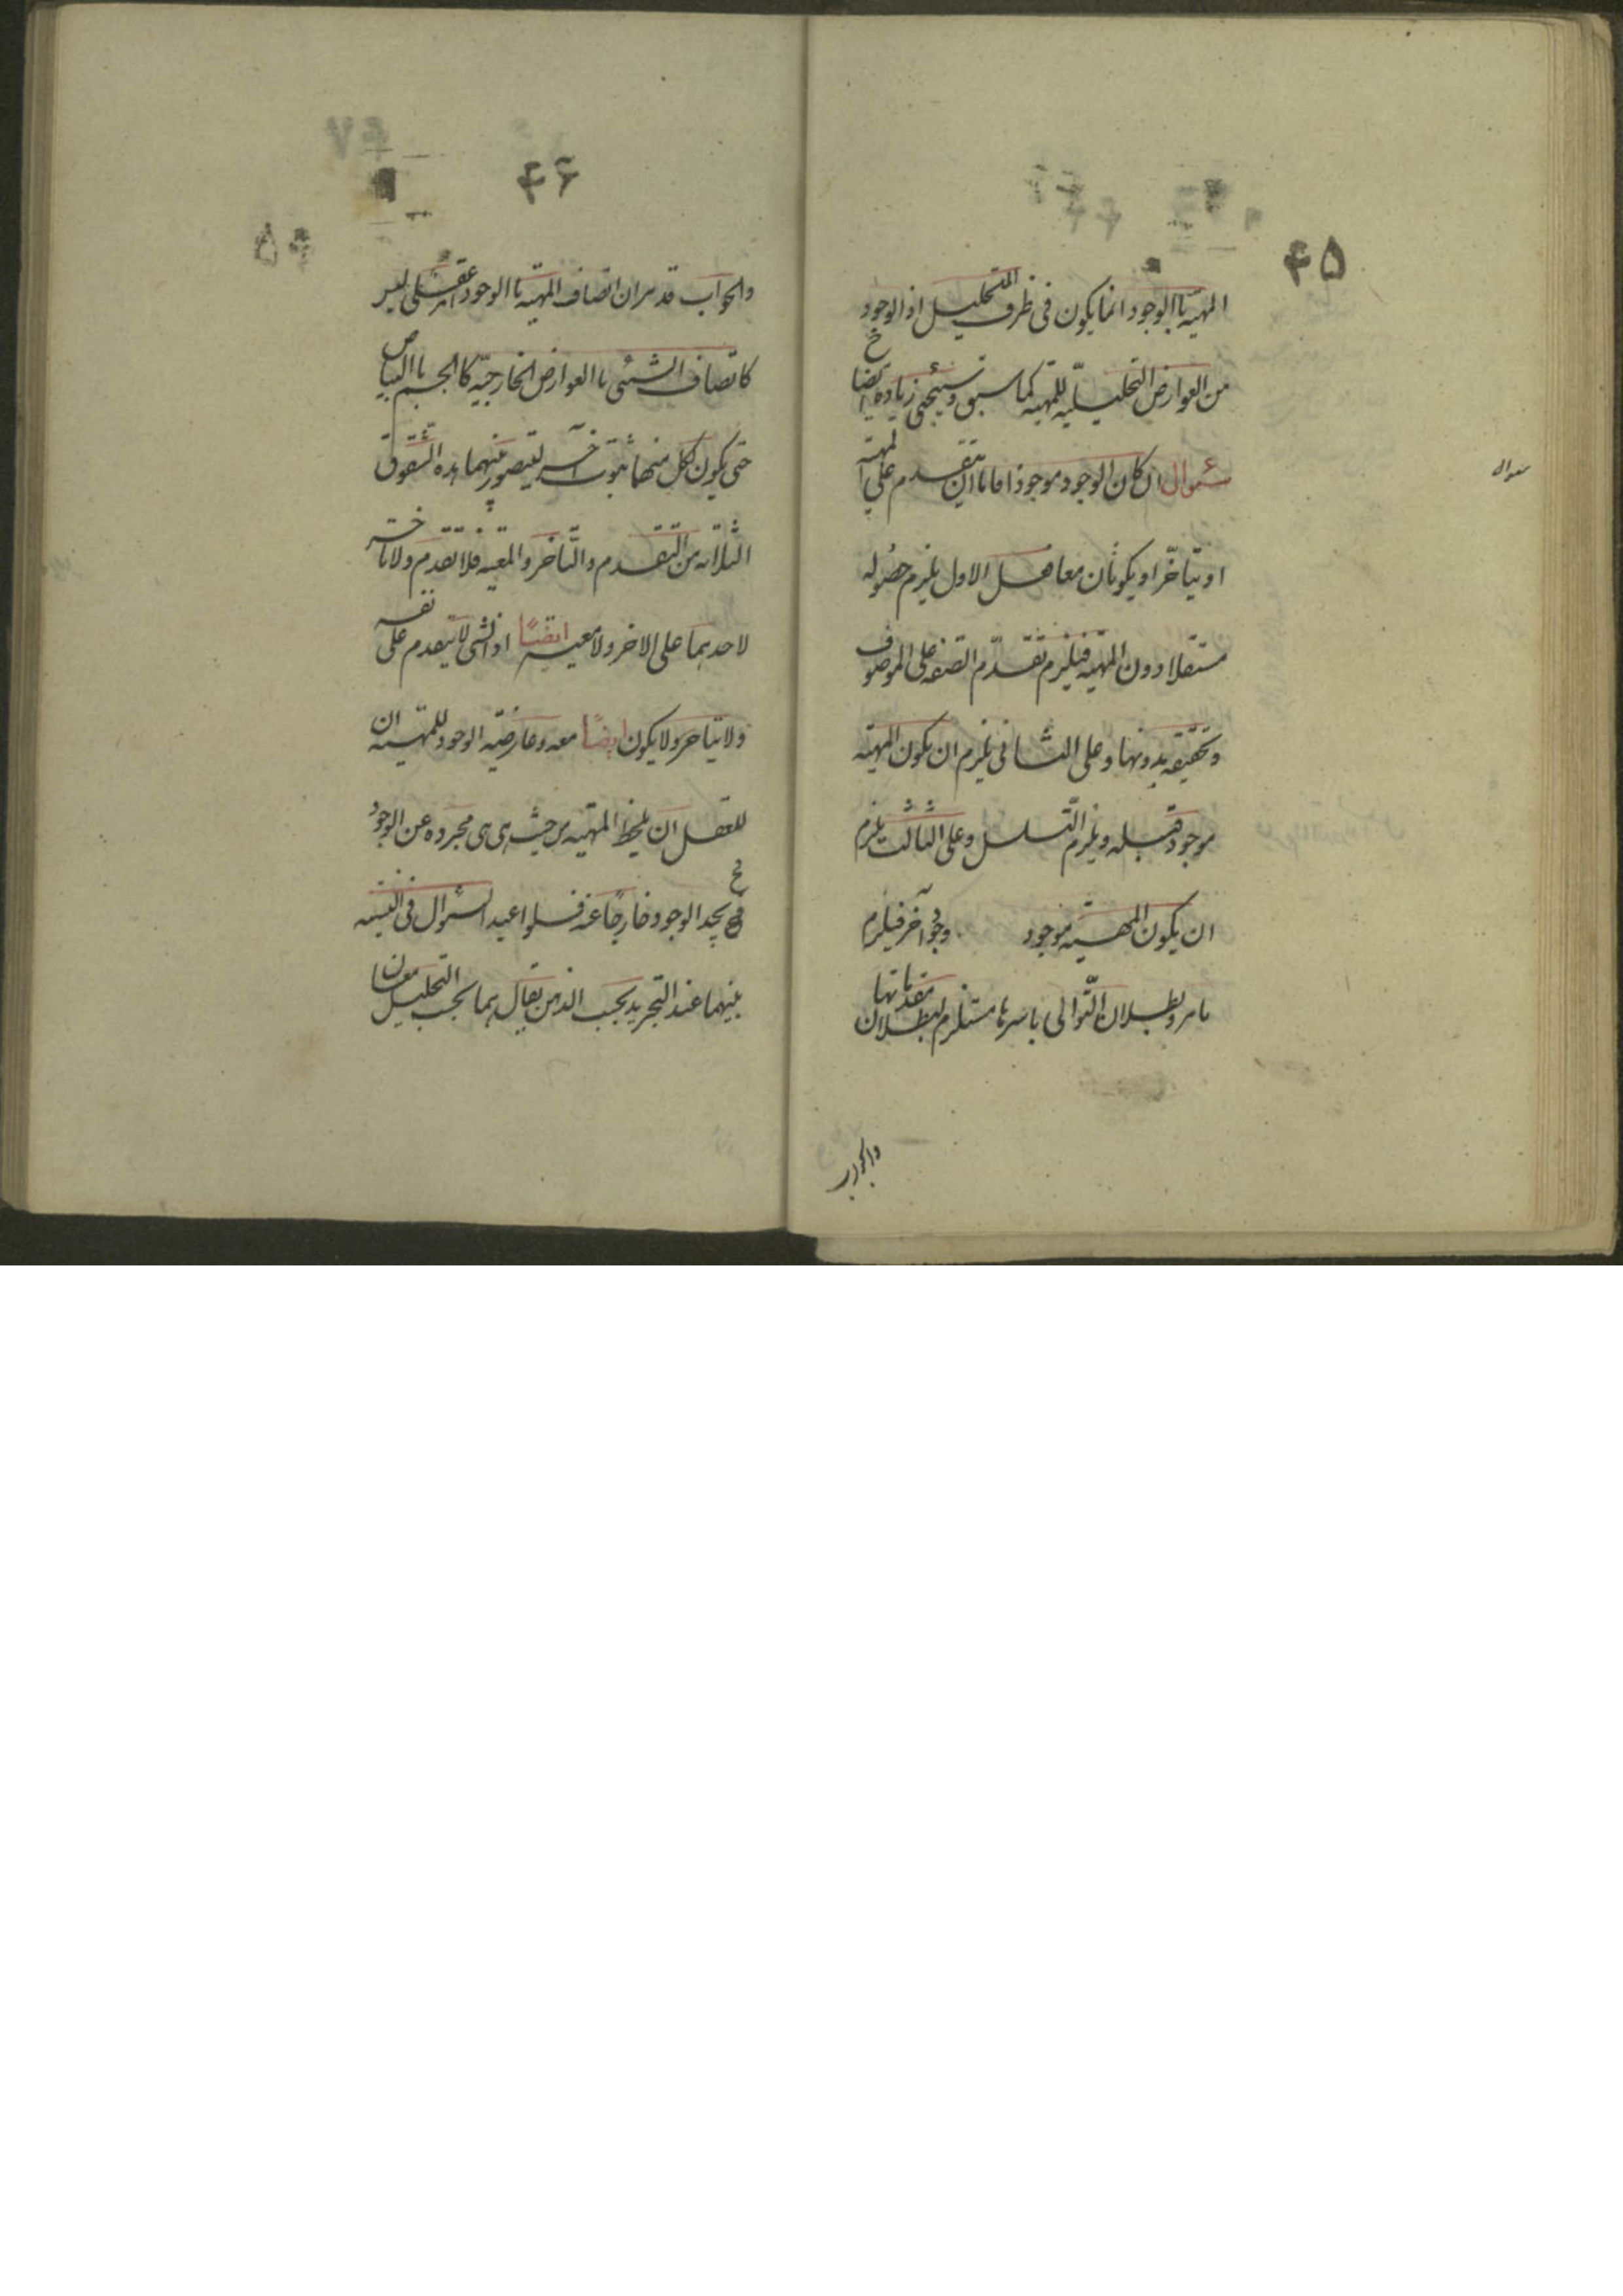 ۴۵
المهیّة باالوجود انما یکون فی ظرف التحلیل اذ الوجود
من العوارض التحلیلیّة للمهیة کما سبق وسیجئی زیادة ایضا
سئوال ان کان الوجود موجودًا فاما ان یتقدم علی المهیة
او یتاخّر او یکونان معا فعل الاول یلزم حصُوله
مستقلا دون المهیّة فیلزم تقدّم الصّفة علی الموصوف
وتحقیقه بدونها وعلی الثانی یلزم ان یکون المهیّة
موجود قبله ویلزم التّسلسل وعلی الثالث یلزم
ان یکون المهیّة موجود وجودٌ آخر فیلزم
مامر وبطلان التّوالی باسرها مستلزم لبطلان مقدماتها
سوال
والجواب
۴۶
والجواب قد مر ان اتصاف المهیّة باالوجود امر عقلی لیس
کاتصاف الشئی باالعوارض الخارجیّه کاالجسم باالبیاض
حتی یکون لکل منهما ثبوت آخر لیتصور بینهما هذه الشقوق
الثلاثه من التّقدم والتّاخر والمعیّه فلا تقدم ولا تاخّر
لاحدهما علی الاخر ولا معیّه ایضًا اذ الشی لا یتقدم علی نفسه
ولا یتاخر ولا یکون ایضًا معه وعارضیّه الوجود للمهیّه ان
للعقل ان یلحظ المهیّه من حیث هی هی مجرده عن الوجود
فح یجد الوجود خارجًا عنه فلو اعید السّوال فی النسبه
بینهما عند التجرید بحسب الذهن یقال هما بحسب التحلیل معان